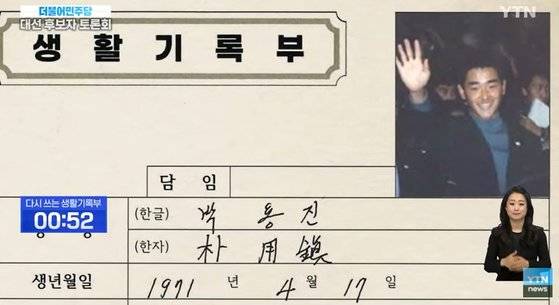 더불어민주당
대선 후보자 토론회
YTN
생활기록부
담 임
다시 쓰는 생활기록부
00:52
(한글) 박 용 진
(한자) 朴 用 鎭
생년월일 1971 년 4 월 17 일
YTN
news